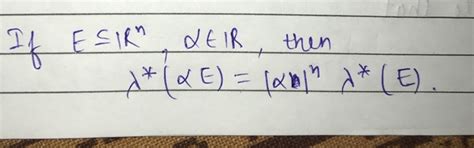 If E ⊆ ℝⁿ, α ∈ ℝ, then
λ*(αE) = |α|ⁿ λ*(E).